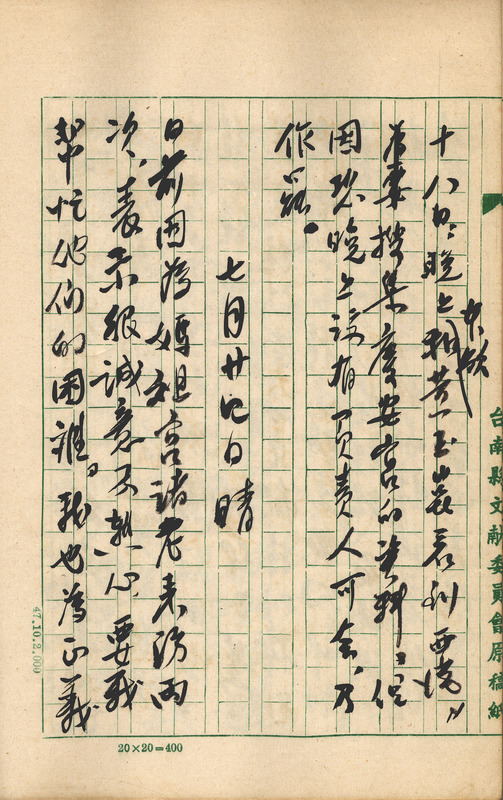 台南縣文獻委員會原稿紙
十八日:晚上和黃玉崑君到西港
為要搜集慶安宮的資料,但
因恐晚上沒有負責人可會,乃
作罷。
七月廿四日 晴
日前因為媽祖宮諸老來訪兩
次,表示很誠意及熱心,要我
幫忙他們的困難。我也為正義
47.10.2,000
20×20=400